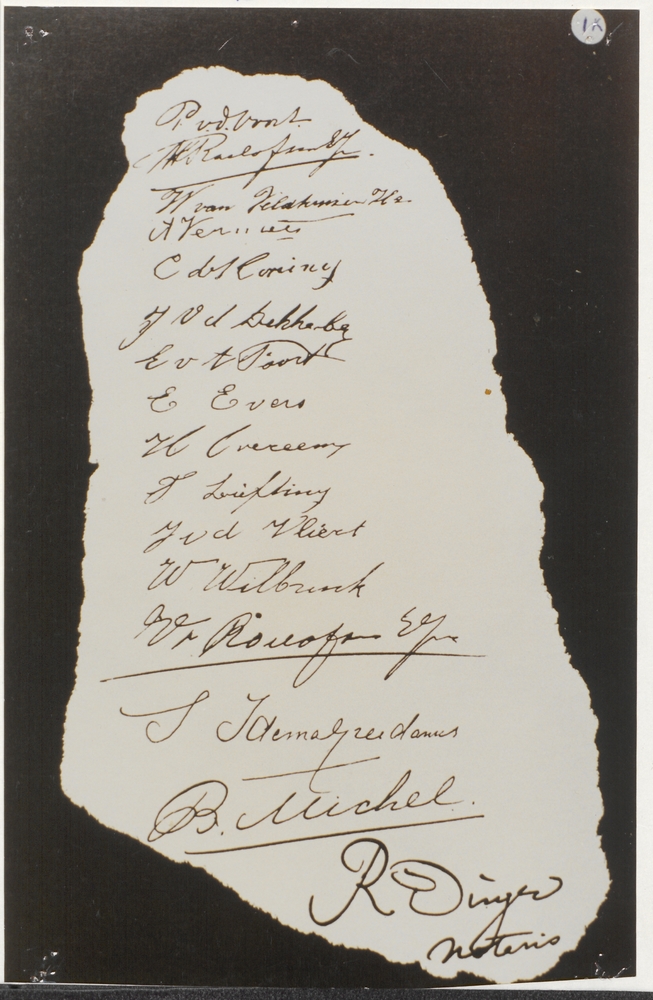 P. v.d. Voort.
Roelofsen
W van Veldhuizen Hz
A
C de Koning
J v d
E v t Foort
E Evers
H Overeem
T Liefting
J v d Vliert
W Wilbrink
Roelofsen
S Idema Greidanus
B. Michel.
R Dinger
notaris